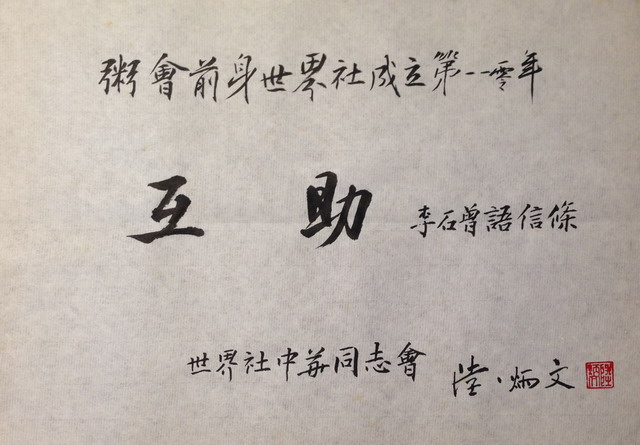 粥會前身世界社成立第一一零年
互助 李石曾語信條
世界社中華同志會 陸、炳文